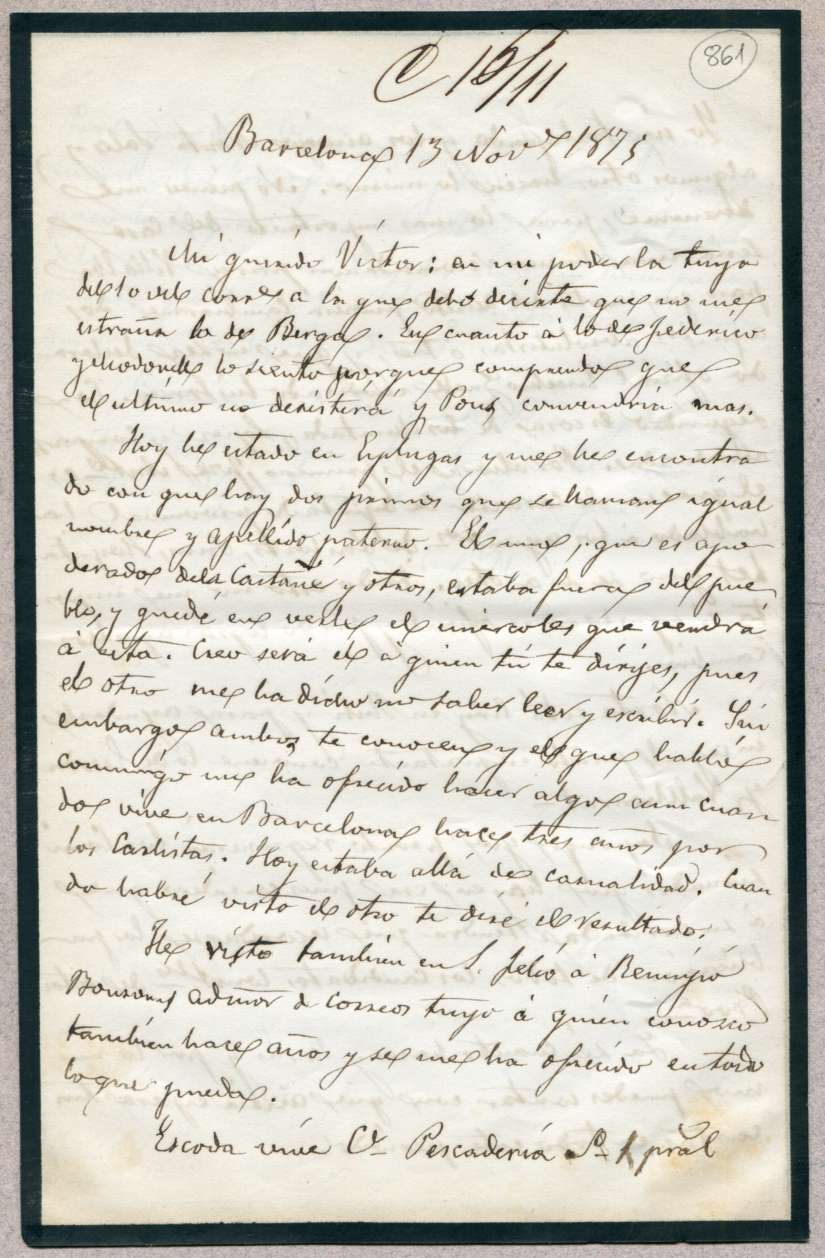 C 16/11
861
Barcelona 13 Nov.e 1875
Mi querido Victor: en mi poder la tuya
del 10 del corre a la que debo decirte que no me
estraña lo de Berga. En cuanto á lo de Federico
y lo siento porque comprendo que
el ultimo no desisterá y Pons convendria mas.
Hoy he estado en Esplugas y me he encontra
do con que hay dos primos que se llaman igual
nombre y apellido paterno. El uno, que es apo
derado de la Castañé y otros, estaba fuera del pue
blo, y quedé en verle el miercoles que vendrá
á esta. Creo será el á quien tú te dirijes, pues
el otro me ha dicho no saber leer y escribir. Sin
embargo ambos te conocen y el que habló
conmigo me ha ofrecido hacer algo aun cuan
do vive en Barcelona hace tres años por
los Carlistas. Hoy estaba allá de casualidad. Cuan
do habré visto el otro te diré el resultado.
He visto tambien en S. Felió á Remigio
Bonsoms admor de correos tuyo á quien conosco
tambien hace años y se me ha ofrecido en todo
lo que pueda.
Escoda vive C.e Pescaderia 1 pral